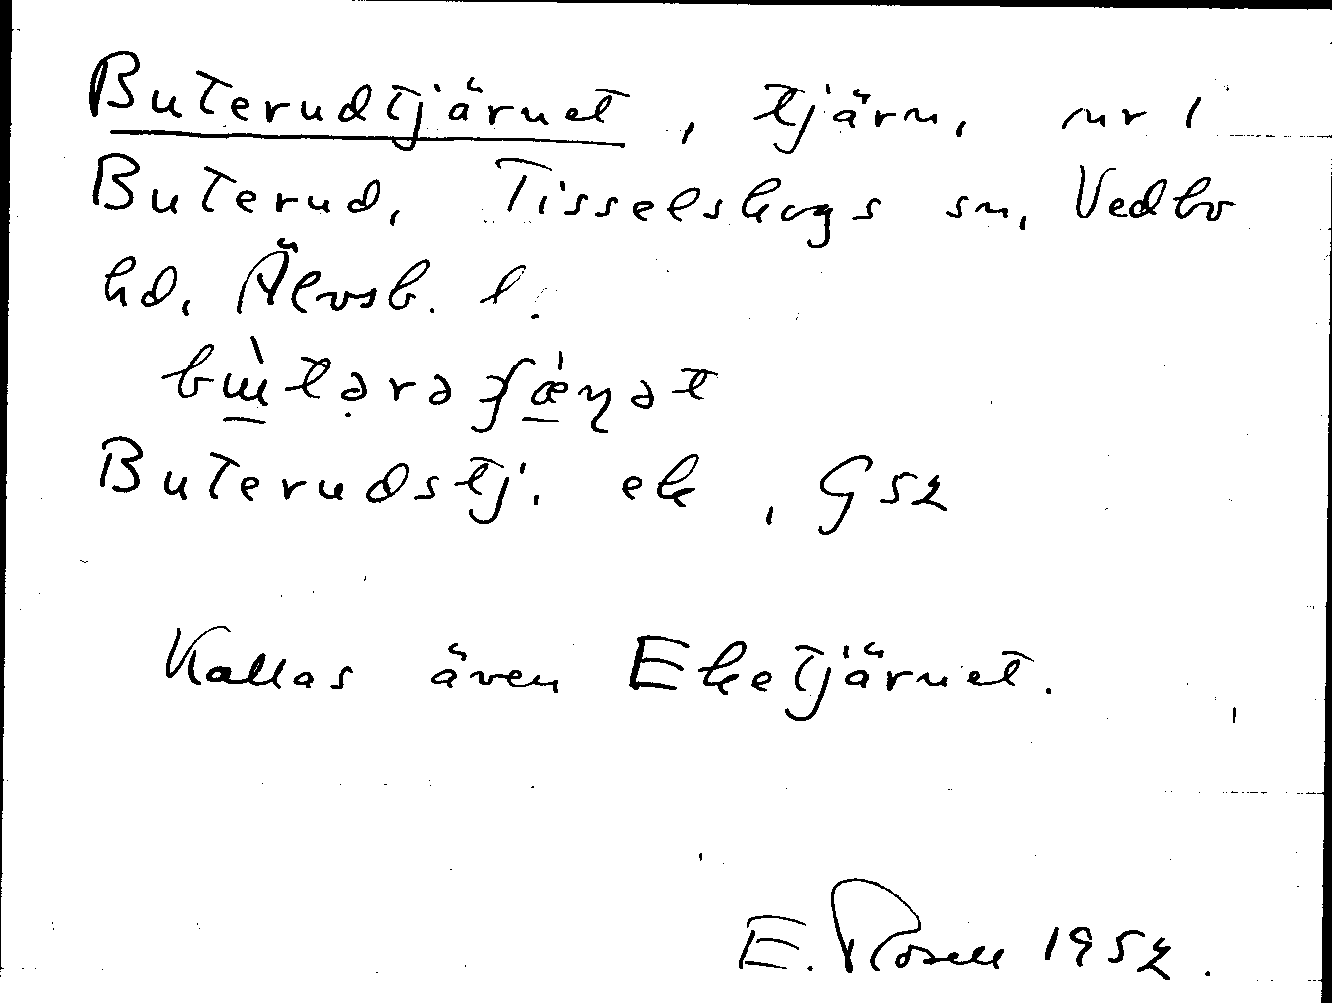 Buterudtjärnet, tjärn, nr 1
Buterud, Tisselskogs sn, Vedbo
hd, Älvsb. l.
Buterudstj. ek, G52
Kallas även Eketjärnet.
E. Rosell 1952.